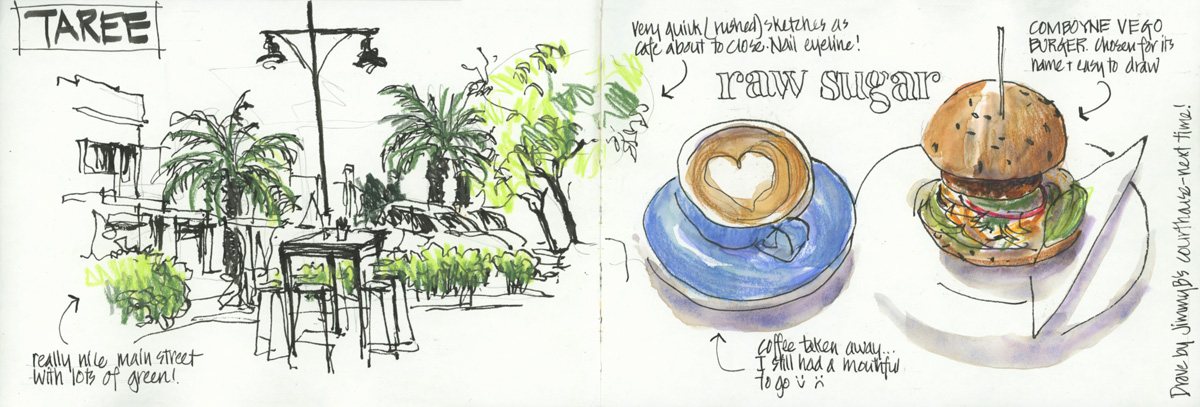 TAREE
really nice main street
with lots of green!
very quick (rushed) sketches as
cafe about to close. Nail eyeline!
raw sugar
COMBOYNE VEGO
BURGER. Chosen for its
name + easy to draw
coffee taken away...
I still had a mouthful
to go
Drove by JimmyB's courthouse-next time!